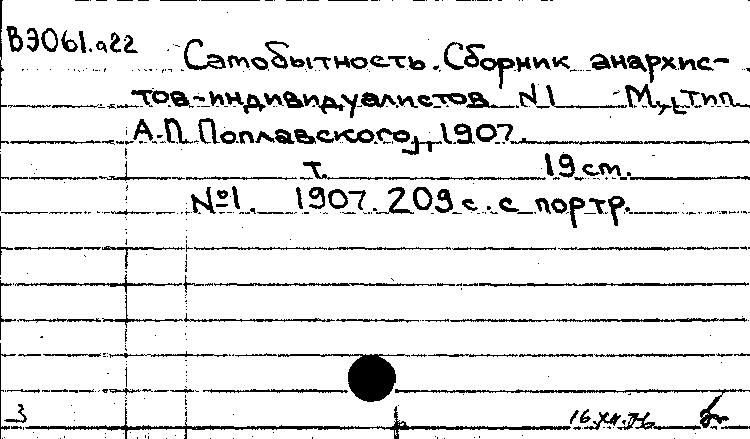 В3061.а22
Самобытность. Сборник анархис-
тов-индивидуалистов N1 М., [тип
А.П. Поплавского], 1907.
т. 19 см.
№1. 1907. 209 с. с портр.
3